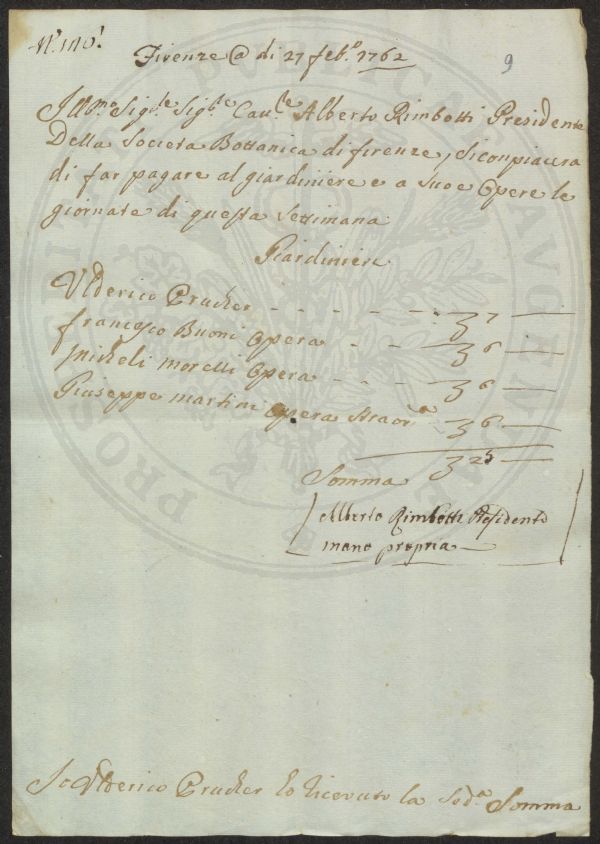 N.º 140.!
Firenze @ di 27 feb.º 1762
9
Ill.mo Sig.re Sig.re Cau.re Alberto Rimbotti Presidente
Della Societa Bottanica di firenze, Siconpiacera
di far pagare al giardiniere e a Sue Opere le
giornate di questa Settimana
Giardiniere
Ulderico Prucker - - - - - - 7 —
francesco Buoni Opera - - - - 6 —
Micheli morelli Opera - - - 6 —
Giuseppe martini opera straor.a 6 —
25 —
Somma
Alberto Rimbotti Presidente
mano propria
Io Ulderico Prucker ho ricevuto la Sod.a Somma
PVBLICAE
PROSPERITATIS AVGENTVR